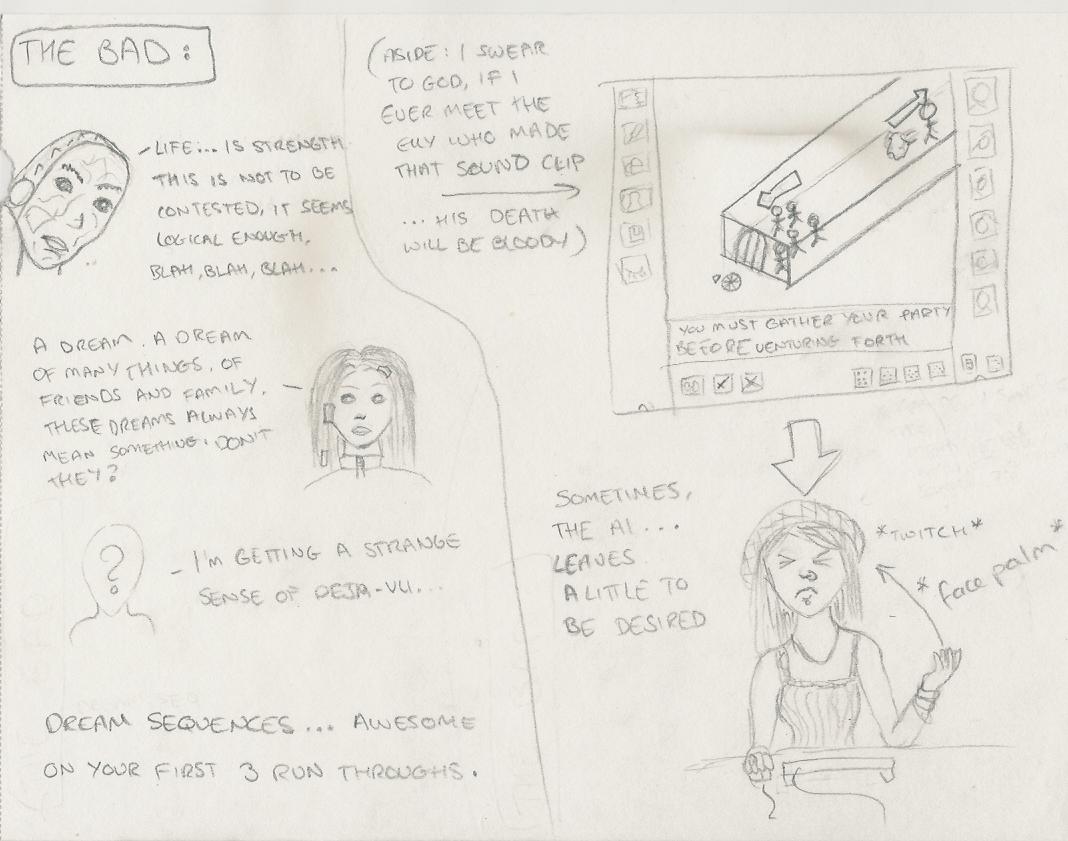 THE BAD:
- LIFE... IS STRENGTH.
THIS IS NOT TO BE
CONTESTED, IT SEEMS
LOGICAL ENOUGH,
BLAH, BLAH, BLAH...
A DREAM. A DREAM
OF MANY THINGS, OF
FRIENDS AND FAMILY.
THESE DREAMS ALWAYS
MEAN SOMETHING. DON'T
THEY?
?
- I'M GETTING A STRANGE
SENSE OF DEJA-VU...
DREAM SEQUENCES... AWESOME
ON YOUR FIRST 3 RUN THROUGHS.
(ASIDE: I SWEAR
TO GOD, IF I
EVER MEET THE
GUY WHO MADE
THAT SOUND CLIP
... HIS DEATH
WILL BE BLOODY)
YOU MUST GATHER YOUR PARTY
BEFORE VENTURING FORTH
SOMETIMES,
THE AI...
LEAVES
A LITTLE TO
BE DESIRED
*TWITCH*
*face palm*